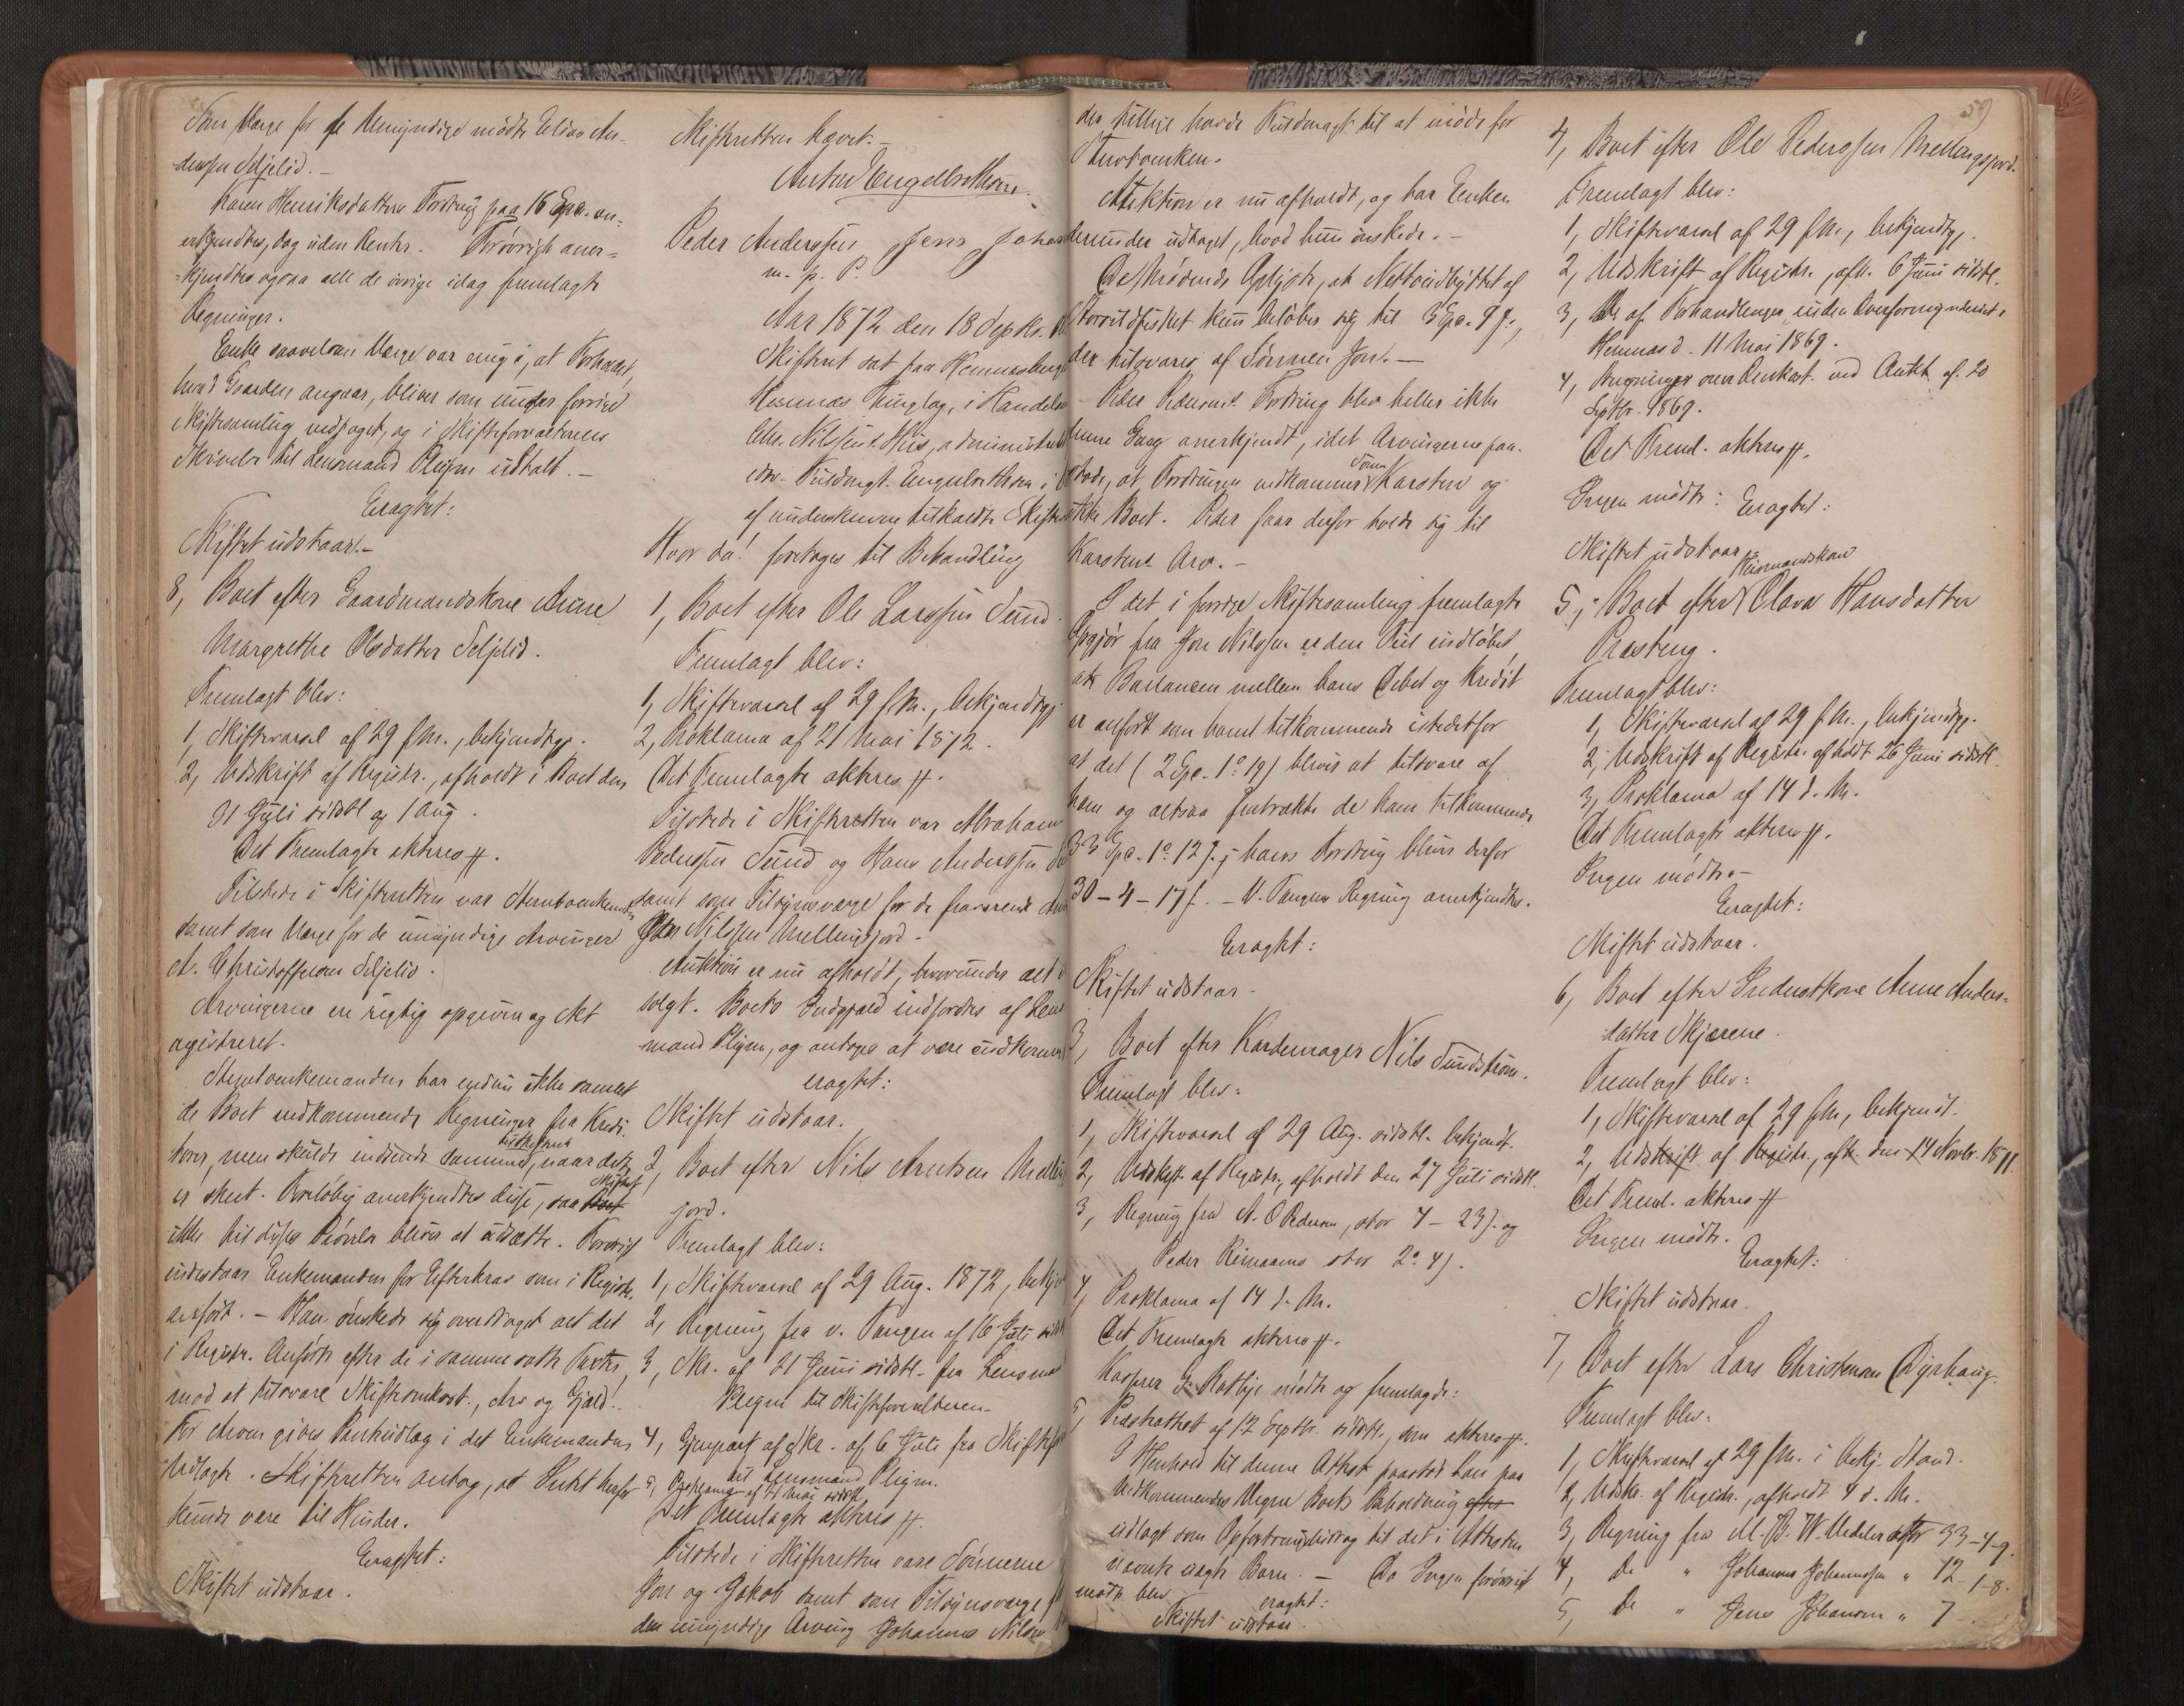 Som Værge for de Umyndige mødte Elias An-
derssen Seljelid. -
Karen Henriksdatters Fordring paa 16 Spd. an-
erkjendtes, dog uden Renter. Forøvrigt aner-
kjendtes ogsaa alle de øvrige idag fremlagte
Regninger.
Enke saavelsom Værge var enig i, at Forholdet,
hvad Gaarden angaar, bliver som under forrige
Skiftesamling vedtaget, og i Skifteforvalterens
Skrivelse til Lensmand Pleym udtalt. -
Eragtet:
Skiftet udstaar. -
8, Boet efter Gaardmandskone Anne
Margrethe Olsdatter Seljelid.
Fremlagt blev:
1, Skiftevarsel af 29 f. M., bekjendtgj.
2, Udskrift af Registr., afholdt i Boet den
31 Juli sidstl. og 1 Aug.
Det Fremlagte akteres #.
Tilstede i Skifteretten var Stervboenkemanden
samt som Værge for de umyndige Arvinger
A. Christoffersen Seljelid.
Arvingerne ere rigtig opgivne og Alt
registreret.
Stervboenkemanden har endnu ikke samlet
de Boet vedkommende Regninger fra Kredi-
torer, men skulde indsende samme, naar dette
er skeet. Foreløbig anerkjendtes disse, saa Skiftet
ikke til disses Prøvelse bliver at udsætte. Forøvrigt
indestaar Enkemanden for Efterkrav som i Registr.
anført. - Han ønskede sig overdraget alt det
i Registr. Anførte efter de i samme satte Taxter,
mod at tilsvare Skifteomkost., Arv og Gjæld.
For Arven gives Panteudlæg i det Enkemanden
Udlagte. Skifteretten antog, at Intet herfor
kunde være til Hinder.
Eragtet:
Skiftet udstaar.
Skifteretten hævet. -
Anton Engelbrethsen.
Peder Anderssen Jens Johan
m. p. P.
Aar 1872 den 18 Septbr. bl
Skifteret sat paa Hemnesberget
Hemnes Thinglag, i Handelsm
Chr. Nilsens Hus, administreret
edsv. Fuldmægt. Engelbrethsen i
af underskrevne tilkaldte Skifte
Hvor da! foretoges til Behandling
1, Boet efter Ole Larssen Sund.
Fremlagt blev:
1, Skiftevarsel af 29 f. M., bekjendtgj
2, Proklama af 21 Mai 1872.
Det Fremlagte akteres #.
Tilstede i Skifteretten var Abraham
Pedersen Sund og Hans Anderssen
samt som Tilsynsværge for de fraværende
Nilssen Mellingsjord.
Auktion er nu afholdt, hvorunder alt
solgt. Boets Indgjæld indfordres af Lens
mand Pleym, og antoges at være indkommet
eragtet:
Skiftet udstaar.
2, Boet efter Nils Arntsen Mellings
jord.
Fremlagt blev:
1, Skiftevarsel af 29 Aug. 1872, bekj
2, Regning fra v. Tangen af 16 Juli sidstl
3, Skr. af 21 Juni sidstl. fra Lensmand
Pleym til Skifteforvalteren.
4, Gjenpart af Skr. af 6 Juli fra Skiftef
til Lensmand Pleym.
5, Proklama af 21 Mai sidstl.
Det Fremlagte akteres #.
Tilstede i Skifteretten vare Sønnerne
Jon og Jakob samt som Tilsynsværge f
den umyndige Arving Johannes Nilsen
der tillige havde Fuldmagt til at møde for
Stervboenken.
Auktion er nu afholdt, og har Enken
derunder udtaget, hvad hun ønskede. -
De Mødende Oplyste, at Nettoudbyttet af
Storsildfisket kun beløber sig til 3 Spd. 7 ß,
der tilsvares af Sønnen Jon. -
Peder Pedersens Fordring blev heller ikke
denne Gang anerkjendt, idet Arvingerne paa-
stode, at Fordringen vedkommer Sønnen Karsten og
ikke Boet. Peder faar derfor holde sig til
Karstens Arv. -
I det i forrige Skiftesamling fremlagte
Opgjør fra Jon Nilssen er den Feil indløbet,
at Ballancen mellem hans Debet og Kredit
er anført som ham tilkommende istedetfor
at det (2 Spd. 1 º 19) bliver at tilsvare af
ham og altsaa fratrækkes de ham tilkommende
33 Spd. 1 º 12 ß; hans Fordring bliver derfor
30 - 4 - 17 ß. - V. Tangens Regning anerkjendtes.
Eragtet:
Skiftet udstaar.
3, Boet efter Kardemager Nils Sundstrøm.
Fremlagt blev:
1, Skiftevarsel af 29 Aug. sidstl. bekjendt.
2, Udskrift af Registr., afholdt den 27 Juli sidstl.
3, Regning fra A. O Pedersen, stor 4 - 23 ß. og
Peder Reinaamo stor 2 º 4 ß.
4, Proklama af 14 d. M.
Det Fremlagte akteres #.
Kasserer G. Rafbye mødte og fremlagde:
5, Præsteattest af 12 Septbr. sidstl., som akteres #.
I Henhold til denne Attest paastod han paa
Vedkommendes Vegne Boets Beholdning
udlagt som Opfostringsbidrag til det i Attesten
nævnte uægte Barn. - Da Ingen forøvrigt
mødte blev
eragtet:
Skiftet udstaar.
59
4, Boet efter Ole Pederssen Mellingsjord.
Fremlagt blev:
1, Skiftevarsel af 29 f. M., bekjendtgj.
2, Udskrift af Registr., afh. 6 Juni sidstl.
3, Do af Forhandlinger inden Overformynderiet i
Hemnes d. 11 Mai 1869.
4, Beregninger over Omkost. ved Aukt. af 20
Septbr. 1869.
Det Freml. akteres #.
Ingen mødte: Eragtet:
Skiftet udstaar. -
5, Boet efter Huusmandskone Olava Hansdatter
Præsteng.
Fremlagt blev:
1, Skiftevarsel af 29 f. M., bekjendtgj.
2, Udskrift af Registr. afholdt 26 Juni sidstl.
3, Proklama af 14 d. M.
Det Fremlagte akteres #.
Ingen mødte. -
Eragtet:
Skiftet udstaar.
6, Boet efter Inderstkone Anne Anders-
datter Skjærene.
Fremlagt blev:
1, Skiftevarsel af 29 f. M., bekjendt.
2, Udskrift af Registr., afh. den 14 Novbr. 1871.
Det Freml. akteres #
Ingen mødte.
Eragtet:
Skiftet udstaar.
7, Boet efter Lars Christensen Dyrhaug.
Fremlagt blev:
1, Skiftevarsel af 29 f. M. i bekj. Stand.
2, Udskr. af Registr., afholdt 4 d. M.
3, Regning fra M. B. W. Meder stor 33 - 4 - 9.
4, Do " Johannes Johannesen " 12 - 1 - 8.
5, Do " Jens Johansen " 7 -